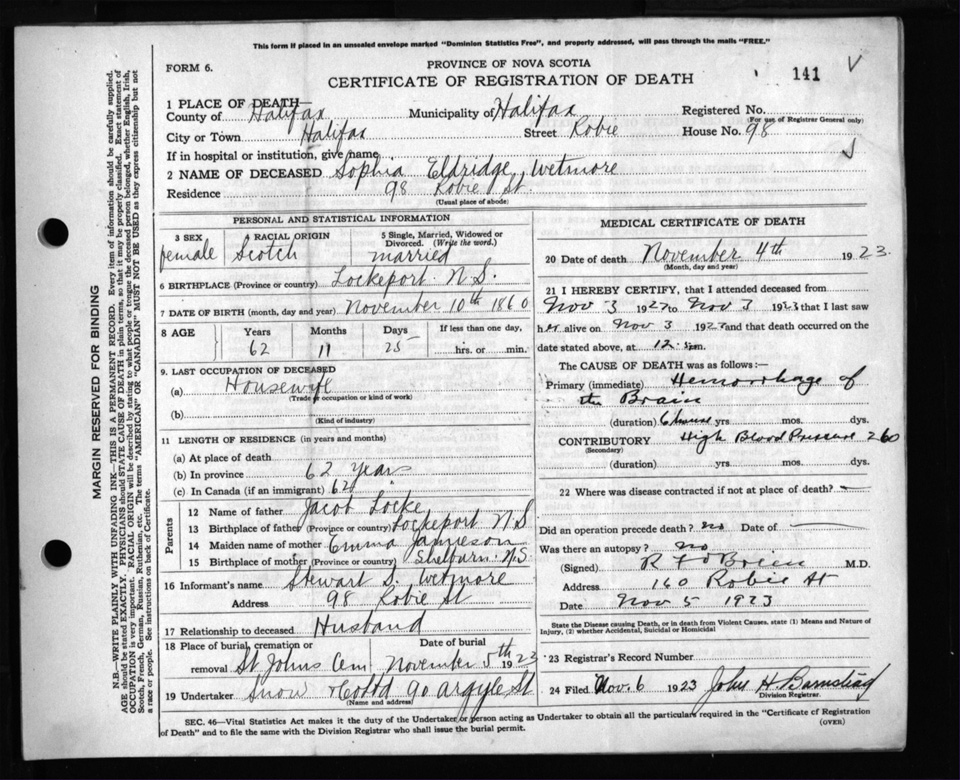 This form if placed in an unsealed envelope marked "Dominion Statistics Free", and properly addressed, will pass through the mails "FREE."
FORM 6.
PROVINCE OF NOVA SCOTIA
CERTIFICATE OF REGISTRATION OF DEATH
141
1 PLACE OF DEATH—
County of Halifax Municipality of Halifax Registered No.
(For use of Registrar General only)
City or Town Halifax Street Robie House No. 98
If in hospital or institution, give name
2 NAME OF DECEASED Sophia Eldridge Wetmore
Residence 98 Robie St.
(Usual place of abode)
PERSONAL AND STATISTICAL INFORMATION
3 SEX 4 RACIAL ORIGIN 5 Single, Married, Widowed or Divorced. (Write the word.)
female Scotch married
6 BIRTHPLACE (Province or country) Lockeport N.S.
7 DATE OF BIRTH (month, day and year) November 10th 1860
8 AGE Years Months Days If less than one day,
62 11 25 hrs. or min.
9. LAST OCCUPATION OF DECEASED
(a) Housewife
(Trade or occupation or kind of work)
(b)
(Kind of industry)
11 LENGTH OF RESIDENCE (in years and months)
(a) At place of death
(b) In province 62 years
(c) In Canada (if an immigrant) 62 "
Parents
12 Name of father Jacob Locke
13 Birthplace of father (Province or country) Lockeport N S
14 Maiden name of mother Emma Jamieson
15 Birthplace of mother (Province or country) Shelburn N.S
16 Informant's name Stewart S. Wetmore
Address 98 Robie St
17 Relationship to deceased Husband
18 Place of burial, cremation or removal Date of burial
St Johns Cem November 5th 1923
19 Undertaker Snow 90 Argyle St
(Name and address)
MEDICAL CERTIFICATE OF DEATH
20 Date of death November 4th 1923.
(Month, day and year)
21 I HEREBY CERTIFY, that I attended deceased from
Nov 3 1923 to Nov 3 1923 that I last saw
her alive on Nov 3 1923 and that death occurred on the
date stated above, at 12 m.
The CAUSE OF DEATH was as follows:—
Primary (immediate) Hemorrhage of
the Brain
(duration) 6 hours yrs mos. dys.
CONTRIBUTORY High Blood Pressure 260
(Secondary)
(duration) yrs mos. dys.
22 Where was disease contracted if not at place of death? —
Did an operation precede death? no Date of —
Was there an autopsy? no
(Signed) R F O'Brien M.D.
Address 160 Robie St
Date Nov 5 1923
State the Disease causing Death, or in death from Violent Causes, state (1) Means and Nature of
Injury, (2) whether Accidental, Suicidal or Homicidal
23 Registrar's Record Number
24 Filed Nov. 6 1923 John H Barnstead
Division Registrar.
SEC. 46—Vital Statistics Act makes it the duty of the Undertaker or person acting as Undertaker to obtain all the particulars required in the "Certificate of Registration
of Death" and to file the same with the Division Registrar who shall issue the burial permit.
(OVER)
MARGIN RESERVED FOR BINDING
N.B.—WRITE PLAINLY WITH UNFADING INK—THIS IS A PERMANENT RECORD. Every item of information should be carefully supplied.
AGE should be stated EXACTLY. PHYSICIANS should STATE CAUSE OF DEATH in plain terms, so that it may be properly classified. Exact statement of
OCCUPATION is very important. RACIAL ORIGIN will be described by stating to what people or tongue the deceased person belonged, whether English, Irish,
Scotch, French, German, Russian, Ruthenian, etc. The terms "AMERICAN" or "CANADIAN" MUST NOT BE USED as they express citizenship but not
a race or people. See instructions on back of Certificate.